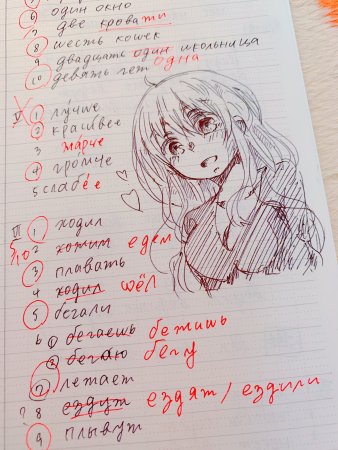 один окно
7 две кровати
8 шесть кошек
9 двадцать один школьница одна
10 девять лет
V 1 лучше
2 красивее
3 жарче
4 громче
5 слабее
VI 1 ходил
2 хотим едем
3 плавать
4 ходил шёл
5 бегали
6 1 бегаешь бежишь
2 бегаю бегу
7 летает
? 8 ездут ездят / ездили
9 плывут